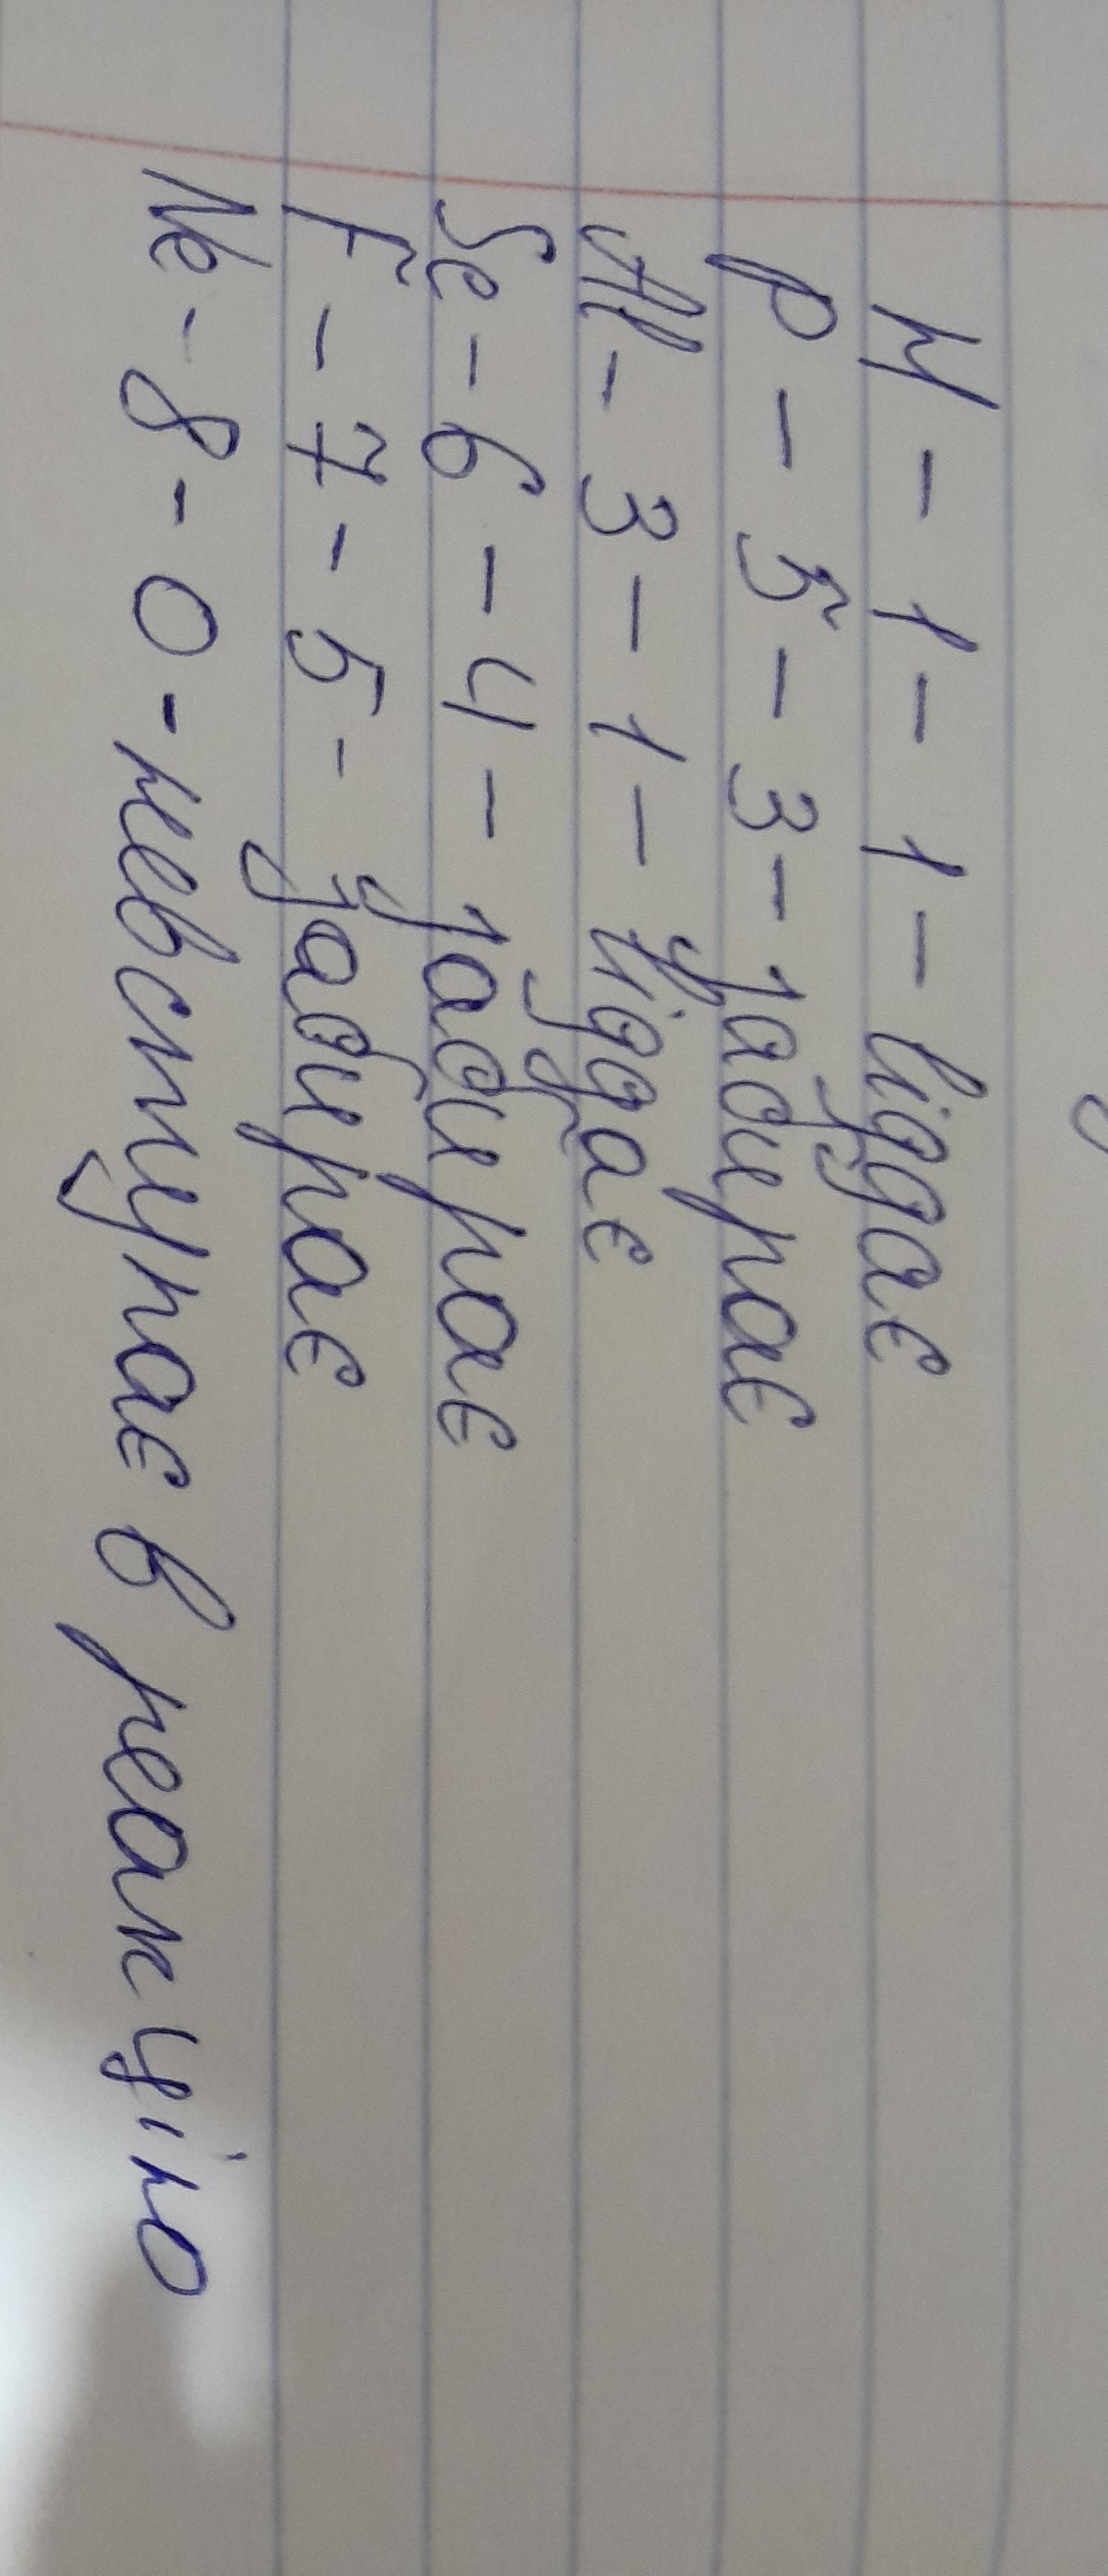 H - 1 - 1 - віддає
P - 5 - 3 - забирає
Al - 3 - 1 - віддає
Se - 6 - 4 - забирає
F - 7 - 5 - забирає
Ne - 8 - 0 - невступає в реакцію